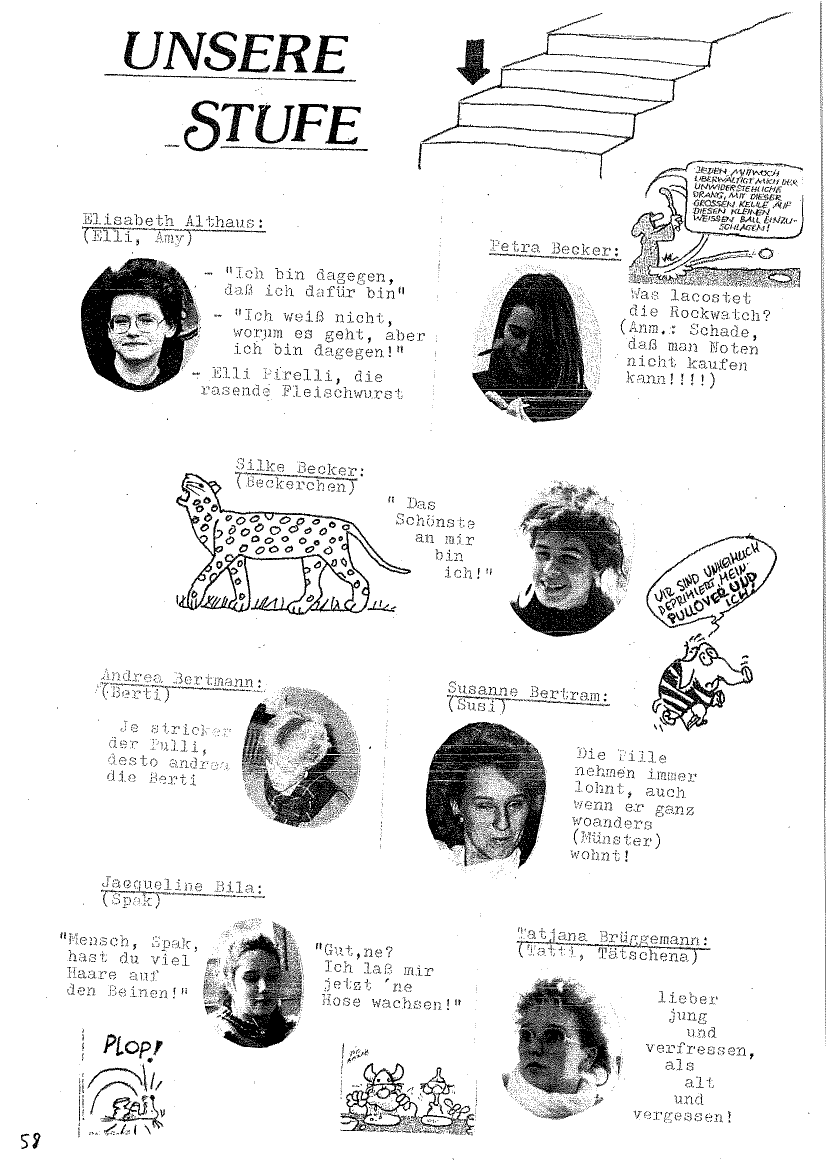 UNSERE
STUFE
JEDEN MITTWOCH
ÜBERWÄLTIGT MICH DER
UNWIDERSTEHLICHE
DRANG, MIT DIESER
GROSSEN KEULE AUF
DIESEN KLEINEN
WEISSEN BALL EINZU-
SCHLAGEN!
Elisabeth Althaus:
(Elli, Amy)
- "Ich bin dagegen,
daß ich dafür bin"
- "Ich weiß nicht,
worum es geht, aber
ich bin dagegen!"
- Elli Pirelli, die
rasende Fleischwurst
Petra Becker:
Was lacostet
die Rockwatch?
(Anm.: Schade,
daß man Noten
nicht kaufen
kann!!!!)
Silke Becker:
(Beckerchen)
" Das
Schönste
an mir
bin
ich!"
WIR SIND UNHEIMLICH
DEPRIMIERT, MEIN
PULLOVER UND
ICH!
Andrea Bertmann:
(Berti)
Je stricker
der Pulli,
desto andrea
die Berti
Susanne Bertram:
(Susi)
Die Pille
nehmen immer
lohnt, auch
wenn er ganz
woanders
(Münster)
wohnt!
Jacqueline Bila:
(Spak)
"Mensch, Spak,
hast du viel
Haare auf
den Beinen!"
"Gut,ne?
Ich laß mir
jetzt 'ne
Hose wachsen!"
PLOP!
Tatjana Brüggemann:
(Tatti, Tätschena)
lieber
jung
und
verfressen,
als
alt
und
vergessen!
58